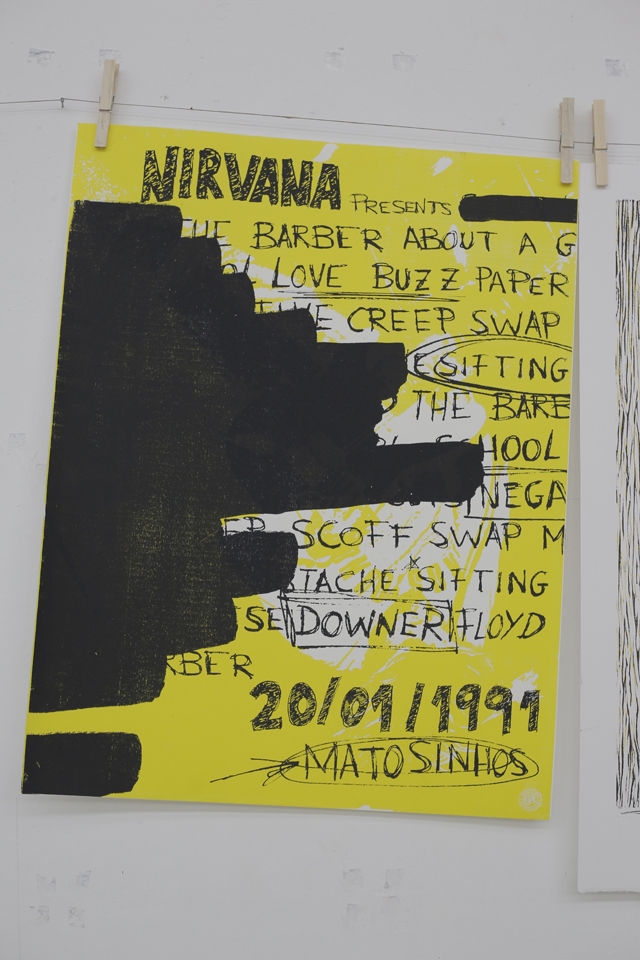 NIRVANA PRESENTS
THE BARBER ABOUT A G
LOVE BUZZ PAPER
CREEP SWAP
SIFTING
THE BARB
SCHOOL
NEGA
SCOFF SWAP M
STACHE SIFTING
SE DOWNER FLOYD
RBER
20/01/1991
MATOSINHOS